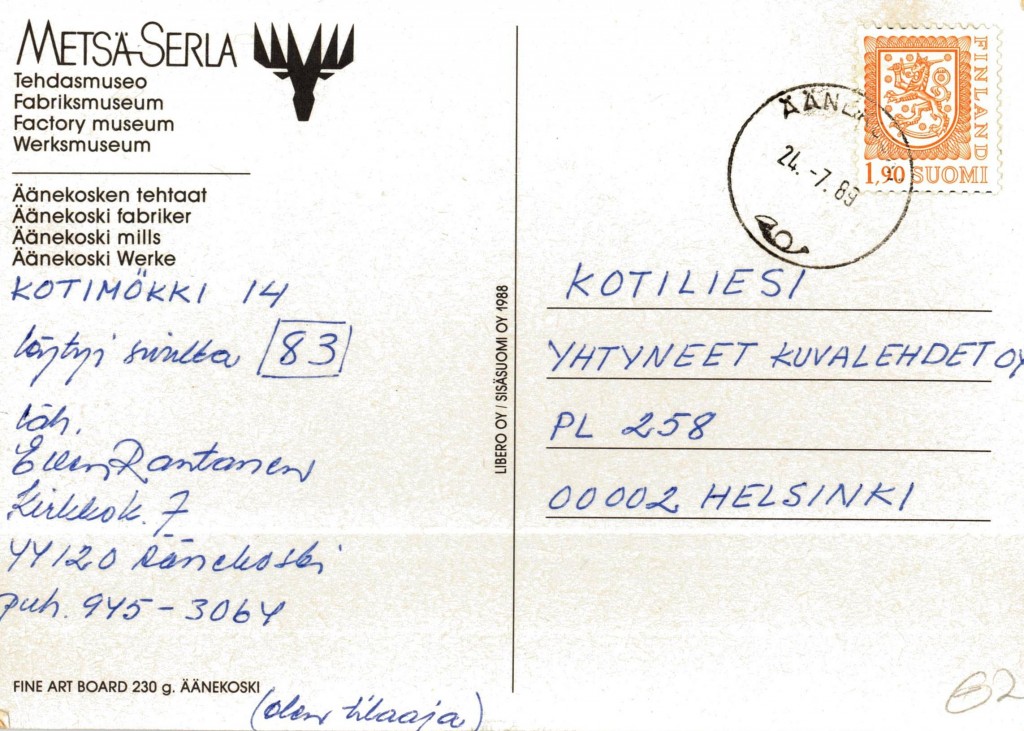 METSÄ-SERLA
Tehdasmuseo
Fabriksmuseum
Factory museum
Werksmuseum
Äänekosken tehtaat
Äänekoski fabriker
Äänekoski mills
Äänekoski Werke
KOTIMÖKKI 14
löytyi sivulta 83
Läh.
Rantanen
Kirkkok. 7
44120 Äänekoski
puh. 945-3064
FINE ART BOARD 230 g. ÄÄNEKOSKI
(olen tilaaja)
LIBERO OY / SISÄSUOMI OY 1988
FINLAND
1,90 SUOMI
24.-7.89
KOTILIESI
YHTYNEET KUVALEHDET OY
PL 258
00002 HELSINKI
62